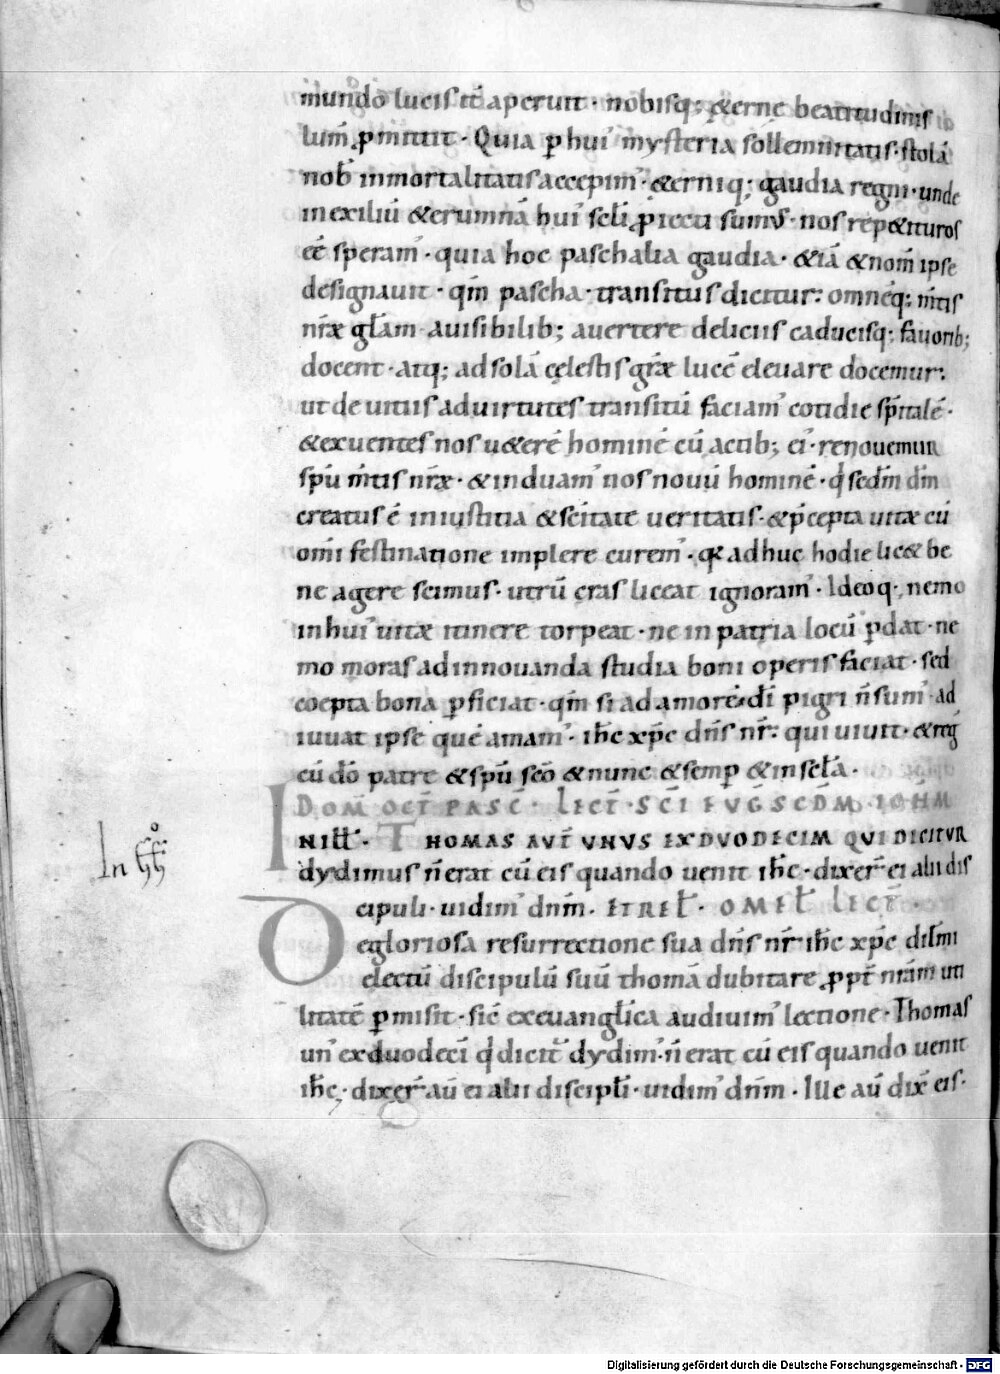 mundo lucis it̄ aperuit · nobisq; &erne beatitudinis
lum̄ p̱mittit · Quia p̱ hui' mysteria sollemnitatis · stolā
nob̄ inmortalitatis accepim' · &erniq; gaudia regni · unde
in exiliū &erumnā hui' scl̄i p̱iecti sumus · nos rep&ituros
eē speram' · quia hoc paschalia gaudia · &iā &nom̄ ipse
designauit · qm̄ pascha · transitus dicitur: omneq; m̄tis
nr̄æ gl̄am auisibilib; auertere deliciis caducisq; fauorib;
docent · atq; ad solā cęlestis gr̄æ lucē eleuare docemur:
ut de uitiis ad uirtutes transitū faciam' cotidie sp̄italē ·
&exuentes nos u&erē hominē cū actib; ei' · renouemur
sp̄u m̄tis nr̄æ · &induam' nos nouū hominē · q̄ sedm̄ dm̄
creatus ē in iustitia &sc̄itate ueritatis · &p̄cepta uitæ cū
om̄i festinatione implere curem' · qæ adhuc hodie lic& be
ne agere scimus · utrū cras liceat ignoram' · Ideoq; nemo
in hui' uitæ itinere torpeat · ne in patria locū p̱dat · ne
mo moras ad innouanda studia boni operis faciat · sed
coepta bona p̱ficiat · qm̄ si ad amorē dī pigri n̄ sum' · ad
iuuat ipse quē amam' · ih̄c xp̄c dn̄s nr̄: qui uiuit · &reḡ
cū dō patre &sp̄u sc̄o &nunc &semp̱ &in scl̄a ·
IDOM̄ OCT̄ PASC̄ · LECT̄ · SC̄I EUḠ SCDM̄ · IOH̄M
IN ILL̄ · THOMAS AUT̄ UNUS EX DUODECIM QUI DICITUR
dydimus n̄ erat cū eis quando uenit ih̄c · dixer̄ ei alii dis
cipuli · uidim' dnm̄ · ET REL̄ · OMEL̄ LECT̄ ·
De gloriosa resurrectione sua dn̄s nr̄ ih̄c xp̄c dilm̄i
electū discipulū suū thomā dubitare p̱pt̄ nr̄am uti
litatē p̱misit · sic̄ ex euangl̄ica audiuim' lectione · Thomas
un' ex duodecī q̄ dicit̄ dydim' · n̄ erat cū eis quando uenit
ih̄c · dixer̄ aū ei alii discipl̄i · uidim' dnm̄ · Ille aū dix̄ eis ·
In
Digitalisierung gefördert durch die Deutsche Forschungsgemeinschaft - DFG